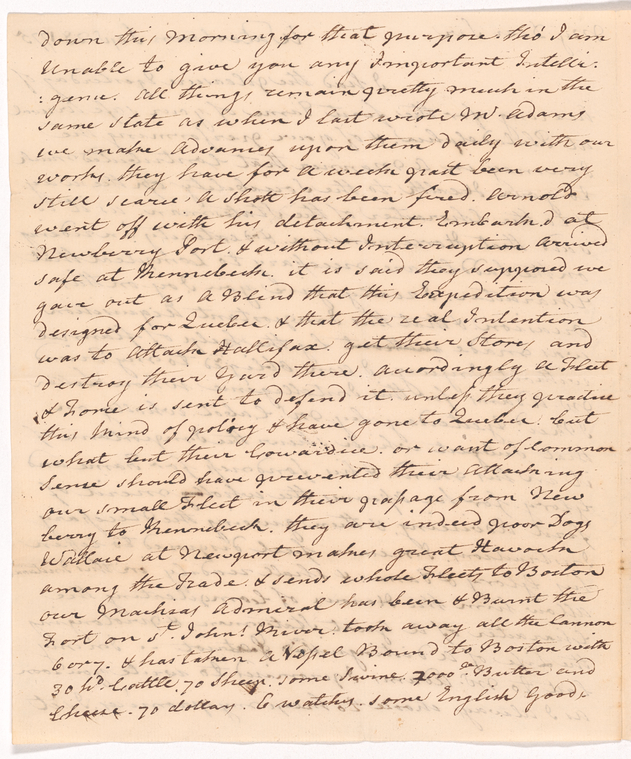 down this Morning for that purpose. tho' I am
Unable to give you any Important Intelli:
:gence. All things remain pretty much in the
same state as when I last wrote Mr. Adams
we make Advances upon them daily with our
works. they have for a week past been very
still scarce A shott has been fired. Arnold
went off with his detachment. Embark.d at
Newberry Port. & without Interruption Arrived
safe at Kennebeck. it is said they supposed we
gave out as A Blind that this Expedition was
designed for Quebec. & that the real Intention
was to Attack Hallifax. get their Stores and
destroy their Yard there. accordingly A Fleet
& Force is sent to defend it. unless they practice
this kind of policy & have gone to Quebec. but
what but their Cowardice. or want of Common
Sense should have prevented their Attacking
our small Fleet in their passage from New
berry to Kennebeck. they are indeed poor Dogs
Wallace at Newport makes great Havock
among the Trade. & sends whole Fleets to Boston
our Machias Admiral has been & Burnt the
Fort on St. John's River. took away all the Cannon
6 or 7. & has taken A Vessel Bound to Boston with
30 hd. Cattle. 70 Sheep. some Swine. 7000 lb Butter and
Cheese. 70 dollars. 6 watches. some English Goods